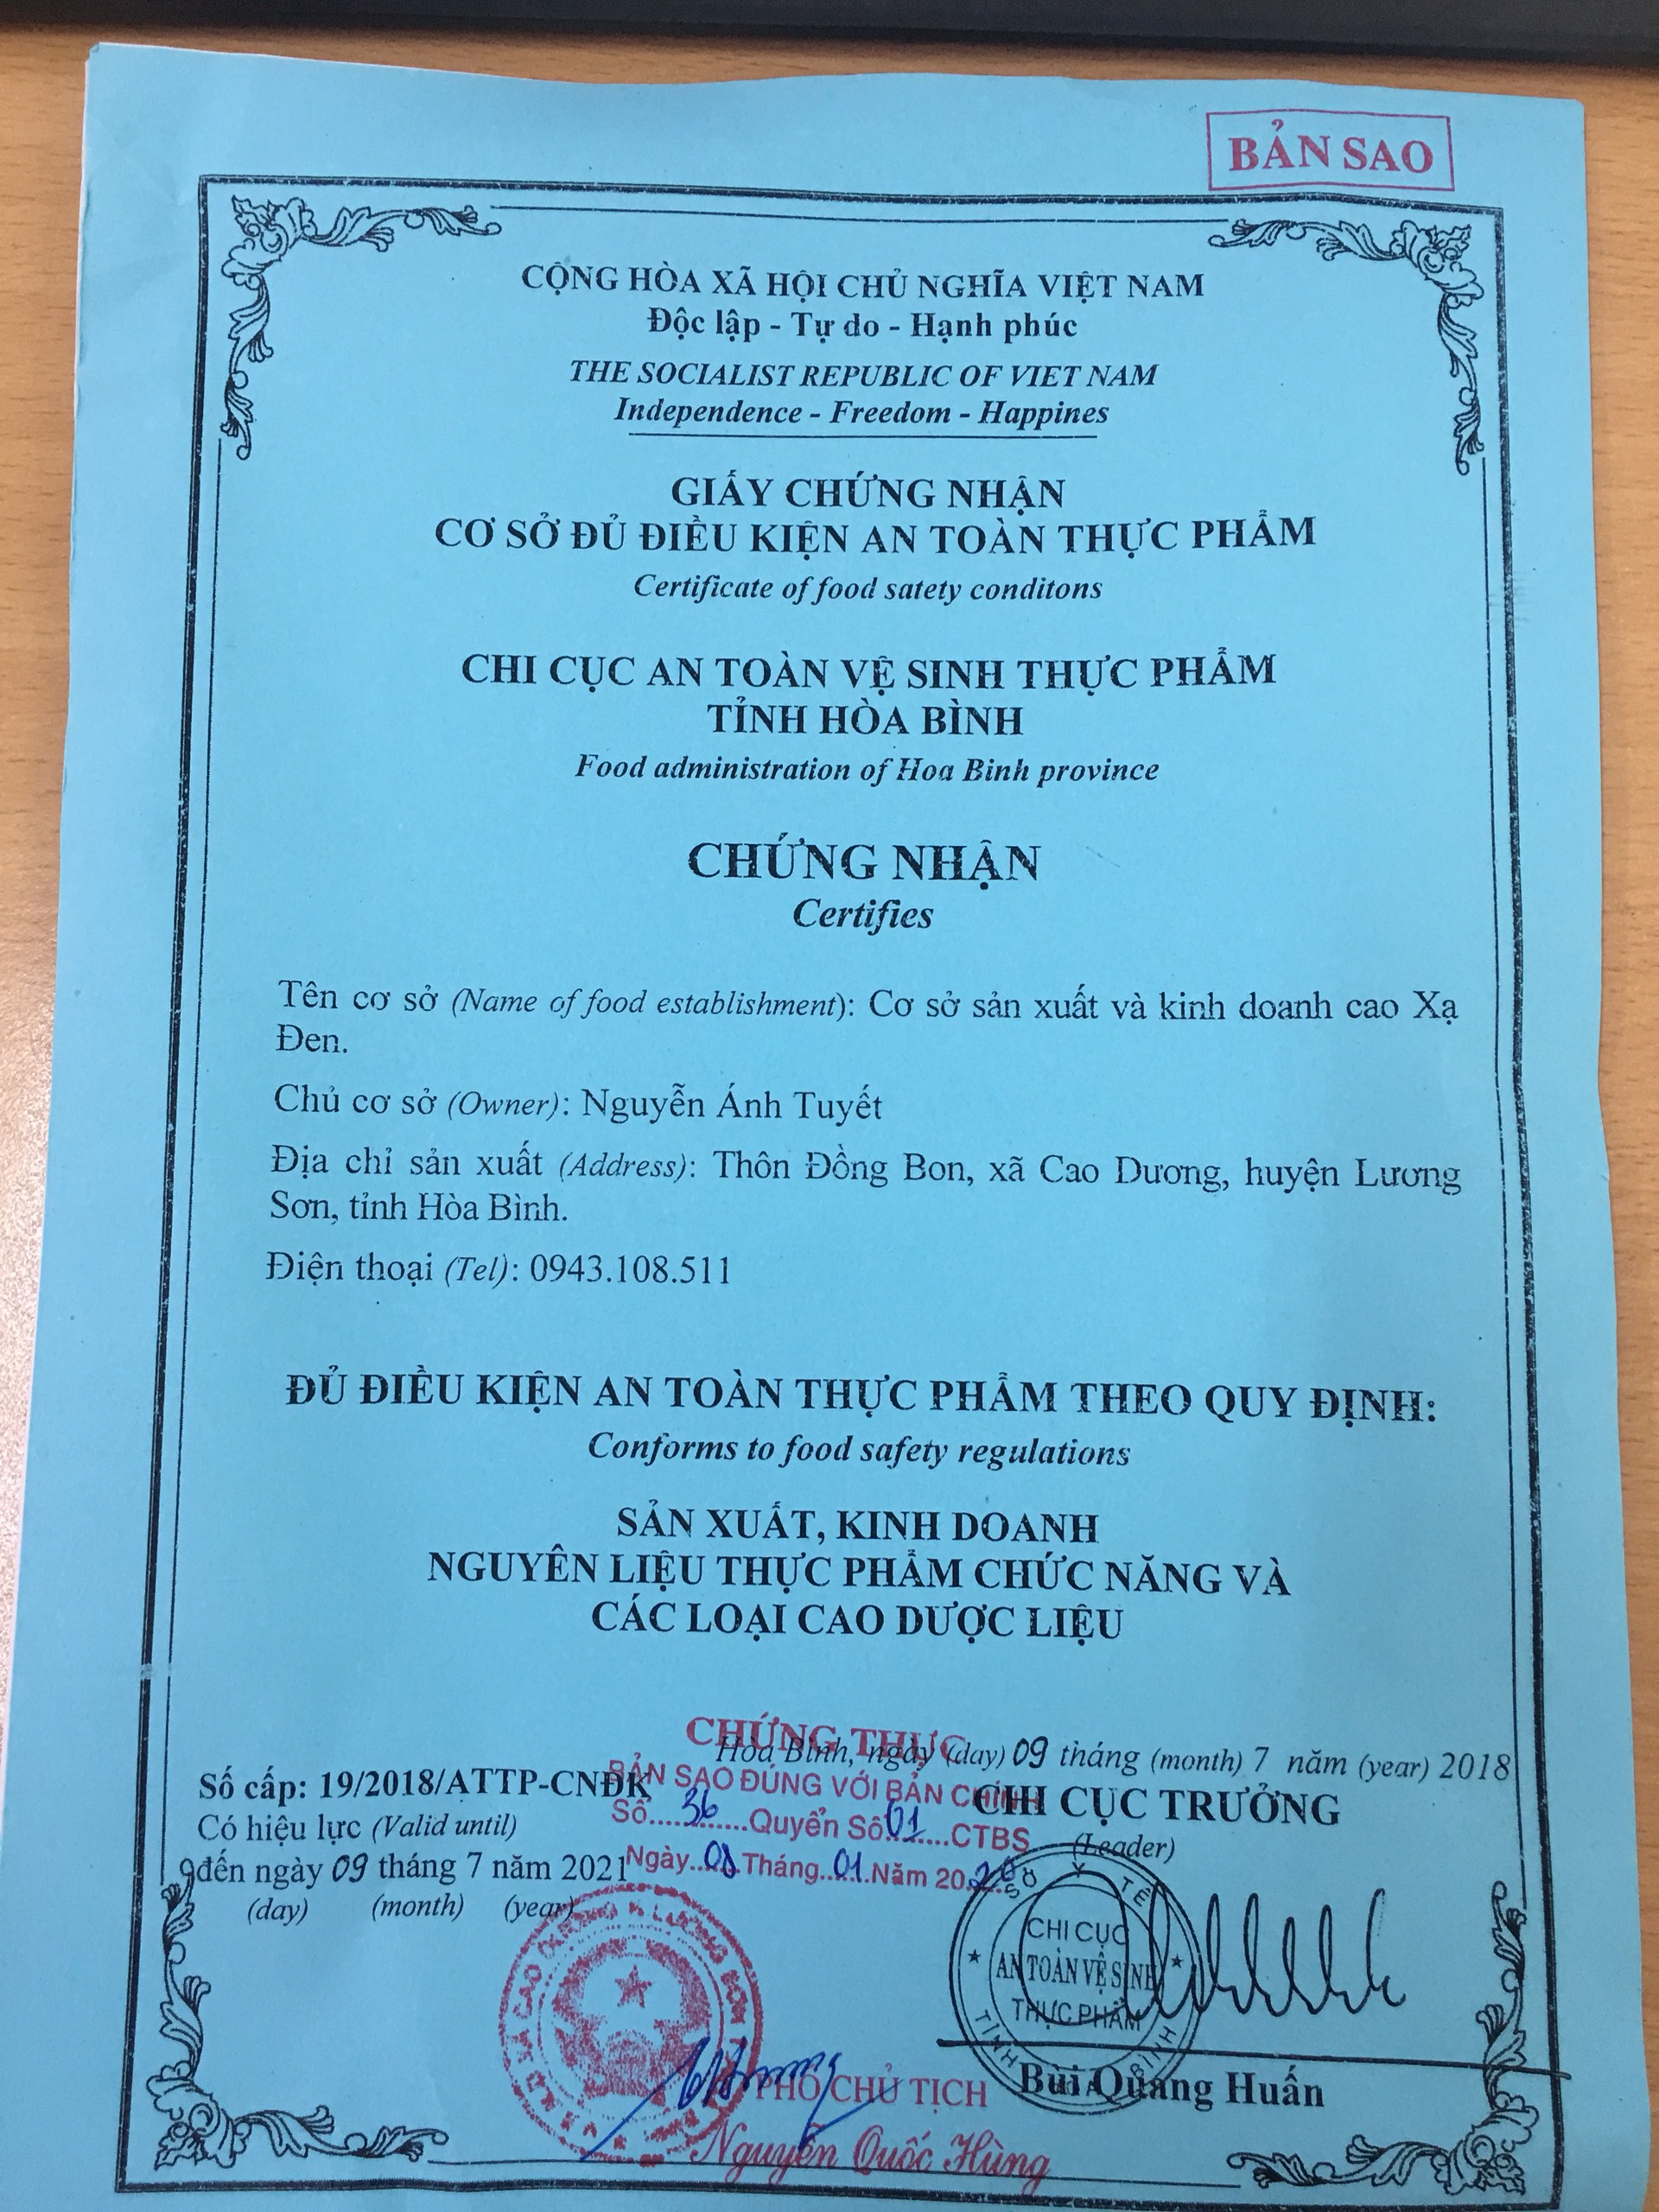 BẢN SAO
CỘNG HÒA XÃ HỘI CHỦ NGHĨA VIỆT NAM
Độc lập - Tự do - Hạnh phúc
THE SOCIALIST REPUBLIC OF VIET NAM
Independence - Freedom - Happines
GIẤY CHỨNG NHẬN
CƠ SỞ ĐỦ ĐIỀU KIỆN AN TOÀN THỰC PHẨM
Certificate of food satety conditons
CHI CỤC AN TOÀN VỆ SINH THỰC PHẨM
TỈNH HÒA BÌNH
Food administration of Hoa Binh province
CHỨNG NHẬN
Certifies
Tên cơ sở (Name of food establishment): Cơ sở sản xuất và kinh doanh cao Xạ
Đen.
Chủ cơ sở (Owner): Nguyễn Ánh Tuyết
Địa chỉ sản xuất (Address): Thôn Đồng Bon, xã Cao Dương, huyện Lương
Sơn, tỉnh Hòa Bình.
Điện thoại (Tel): 0943.108.511
ĐỦ ĐIỀU KIỆN AN TOÀN THỰC PHẨM THEO QUY ĐỊNH:
Conforms to food safety regulations
SẢN XUẤT, KINH DOANH
NGUYÊN LIỆU THỰC PHẨM CHỨC NĂNG VÀ
CÁC LOẠI CAO DƯỢC LIỆU
Hòa Bình, ngày (day) 09 tháng (month) 7 năm (year) 2018
CHI CỤC TRƯỞNG
(Leader)
Số cấp: 19/2018/ATTP-CNĐK
Có hiệu lực (Valid until)
đến ngày 09 tháng 7 năm 2021
(day) (month) (year)
CHỨNG THỰC
BẢN SAO ĐÚNG VỚI BẢN CHÍNH
Số....36......Quyển Số.01....CTBS
Ngày.......Tháng..01..Năm 20.20
SỞ Y TẾ
CHI CỤC
AN TOÀN VỆ SINH
THỰC PHẨM
TỈNH BÌNH
Bùi Quang Huấn
PHÓ CHỦ TỊCH
Nguyễn Quốc Hùng